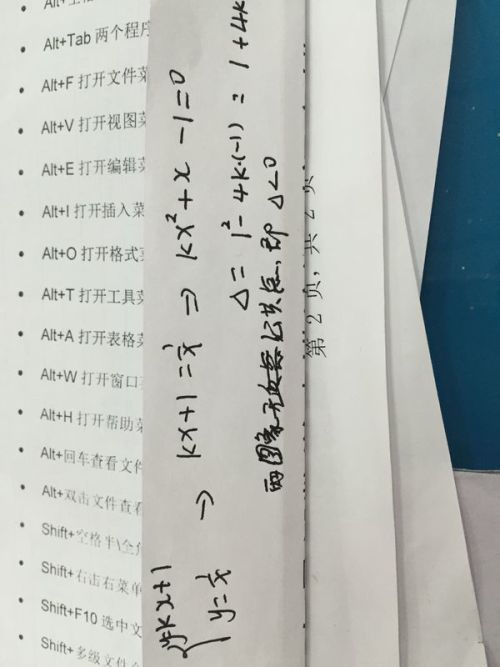 Alt+Tab 两个程序
Alt+F 打开文件菜
Alt+V 打开视图菜
Alt+E 打开编辑菜
Alt+I 打开插入菜
Alt+O 打开格式菜
Alt+T 打开工具菜
Alt+A 打开表格菜
Alt+W 打开窗口
Alt+H 打开帮助菜
Alt+回车查看文件
Alt+双击文件查看
Shift+空格半\全角
Shift+右击右菜单
Shift+F10 选中文
Shift+多级文件
{y=kx+1
y=1/x
⇒ kx+1=1/x ⇒ kx²+x-1=0
Δ=1²-4k·(-1)=1+4k
两图象无公共点,即 Δ<0
第 2 页,共 2 页